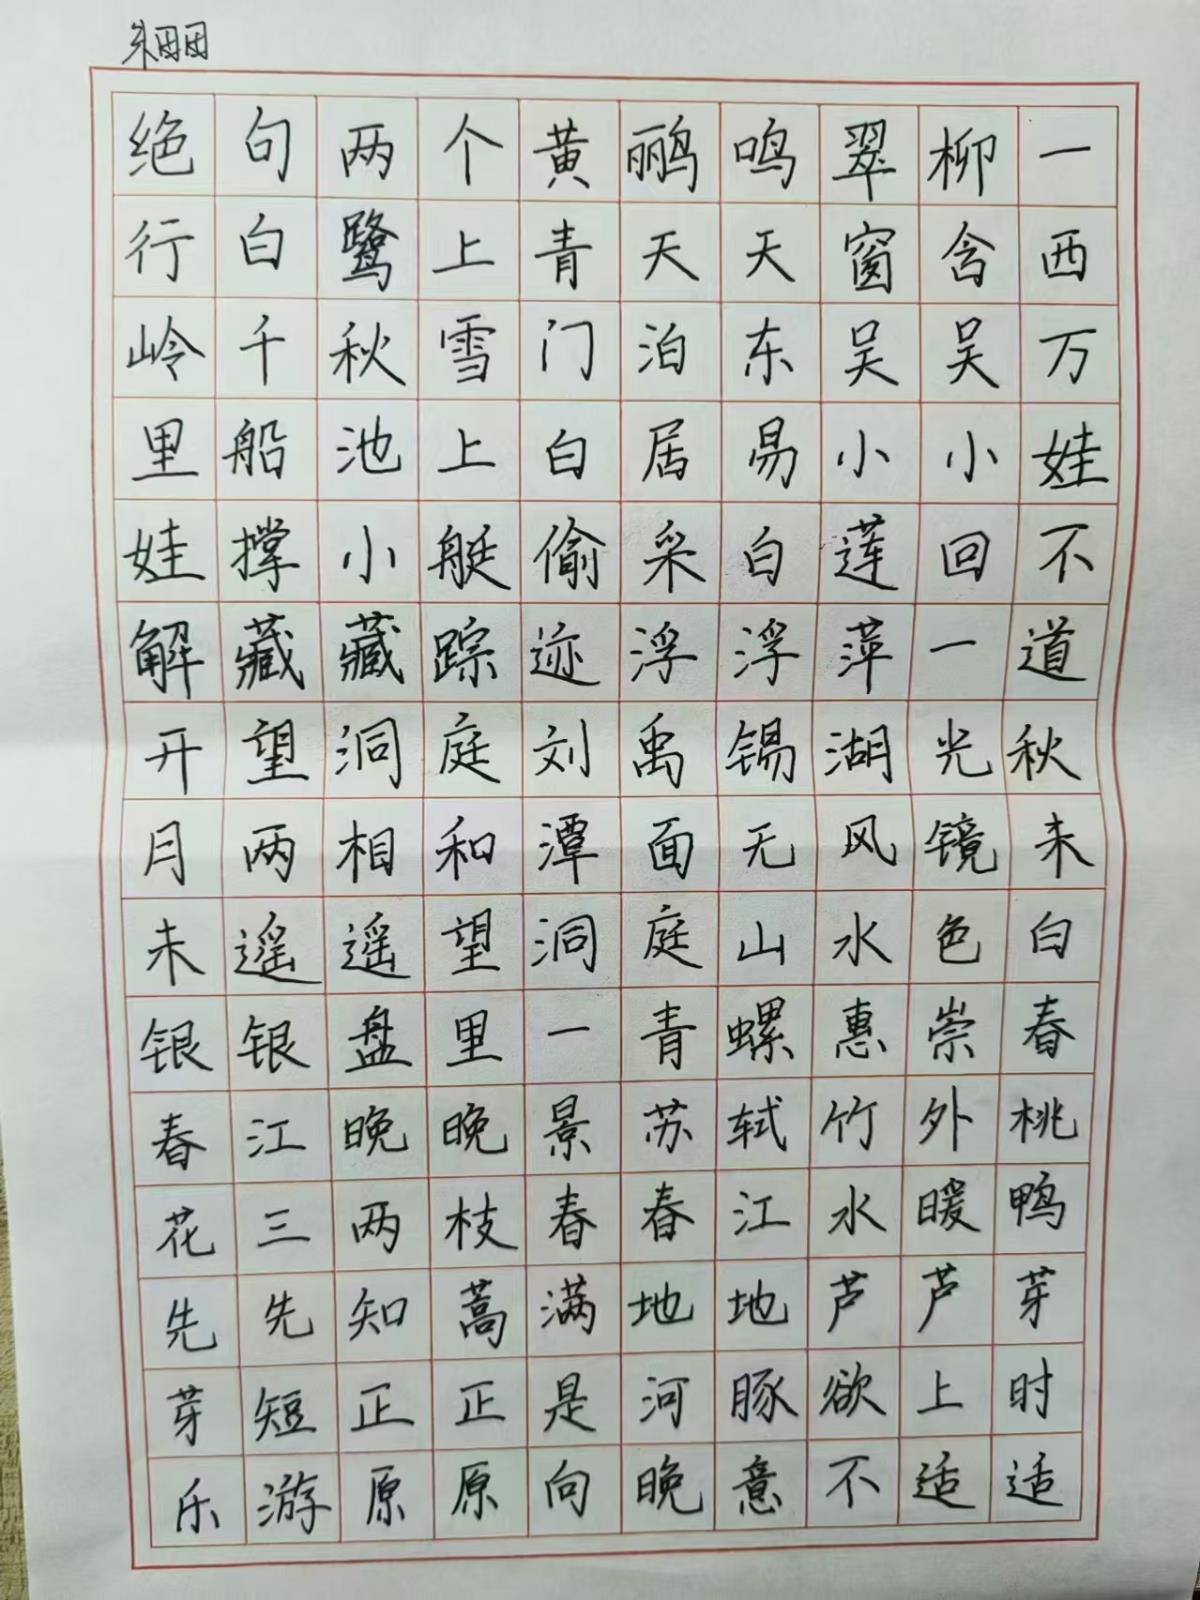 绝句两个黄鹂鸣翠柳一
行白鹭上青天天窗含西
岭千秋雪门泊东吴吴万
里船池上白居易小小娃
娃撑小艇偷采白莲回不
解藏藏踪迹浮浮萍一道
开望洞庭刘禹锡湖光秋
月两相和潭面无风镜未
未遥遥望洞庭山水色白
银银盘里一青螺惠崇春
春江晚晚景苏轼竹外桃
花三两枝春春江水暖鸭
先先知蒿满地地芦芦芽
芽短正正是河豚欲上时
乐游原原向晚意不适适